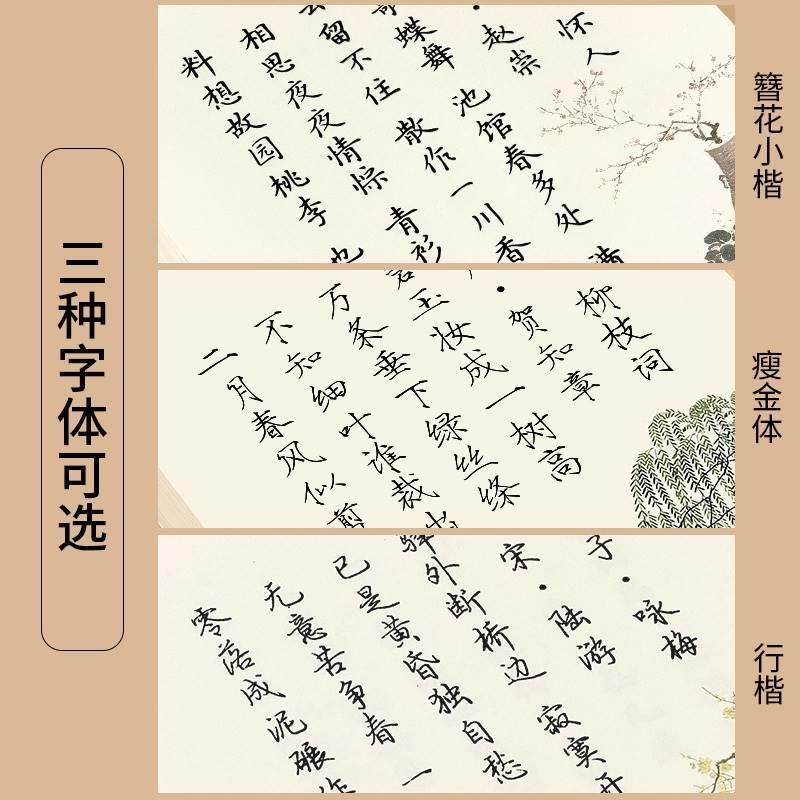 三种字体可选
簪花小楷
怀人
·赵崇
蝶舞 池馆春多处 满
留不住 散作一川香
相思夜夜情悰 青衫
料想故园桃李 也
瘦金体
柳枝词
·贺知章
玉妆成一树高
万条垂下绿丝绦
不知细叶谁裁出
二月春风似剪
行楷
子·咏梅
宋·陆游
驿外断桥边 寂寞开
已是黄昏独自愁
无意苦争春 一
零落成泥碾作